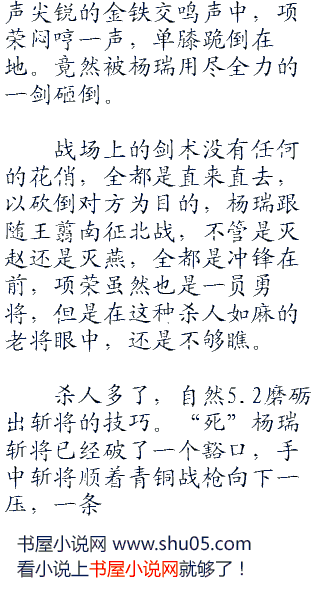 声尖锐的金铁交鸣声中，项
荣闷哼一声，单膝跪倒在
地。竟然被杨瑞用尽全力的
一剑砸倒。
战场上的剑术没有任何
的花俏，全都是直来直去，
以砍倒对方为目的，杨瑞跟
随王翦南征北战，不管是灭
赵还是灭燕，全都是冲锋在
前，项荣虽然也是一员勇
将，但是在这种杀人如麻的
老将眼中，还是不够瞧。
杀人多了，自然5.2磨砺
出斩将的技巧。“死”杨瑞
斩将已经破了一个豁口，手
中斩将顺着青铜战枪向下一
压，一条
书屋小说网 www.shu05.com
看小说上书屋小说网就够了！